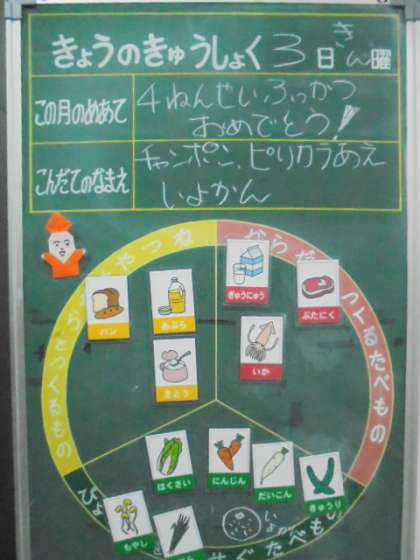 きょうのきゅうしょく 3日 きん曜
この月のめあて
4ねんせい ふっかつ
おめでとう!
こんだてのなまえ
チャンポン、ピリカラあえ
いよかん
ぎゅうにゅう
ぶたにく
パン
あぶら
いか
さとう
はくさい
にんじん
だいこん
きゅうり
もやし
いよかん
つくるもの
つくるたべもの